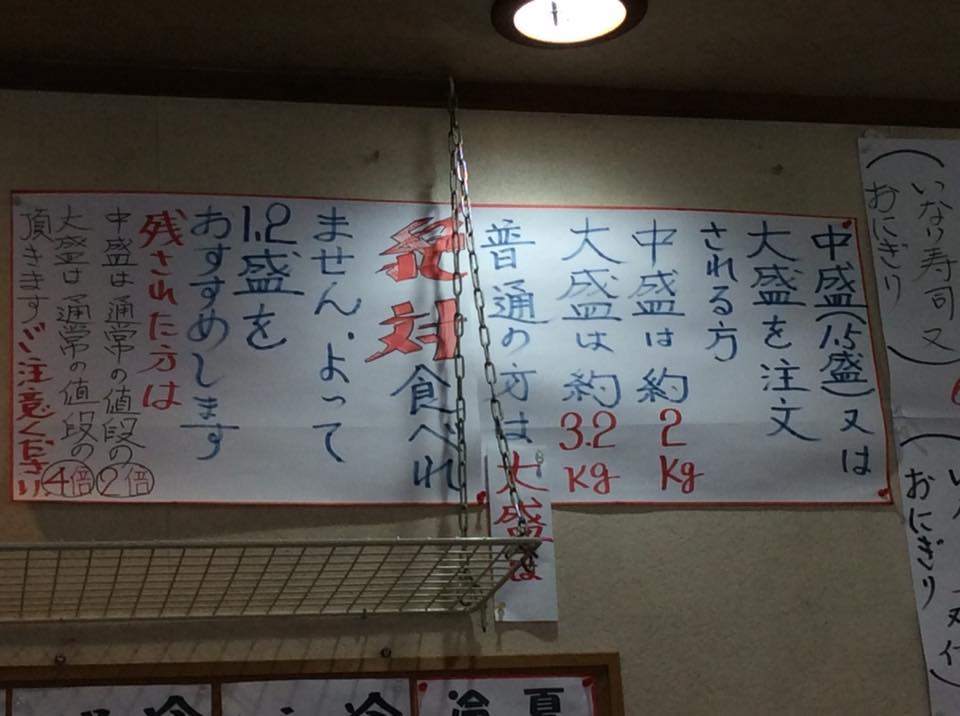 中盛(1.5盛)又は
大盛を注文
される方
中盛は約2Kg
大盛は約3.2Kg
普通の方は大盛は
絶対食べれ
ません.よって
1.2盛を
おすすめします
残された方は
中盛は通常の値段の2倍
大盛は通常の値段の4倍
頂きます ご注意ください
(いなり寿司又
おにぎり)
おにぎり
夏
冷
冷